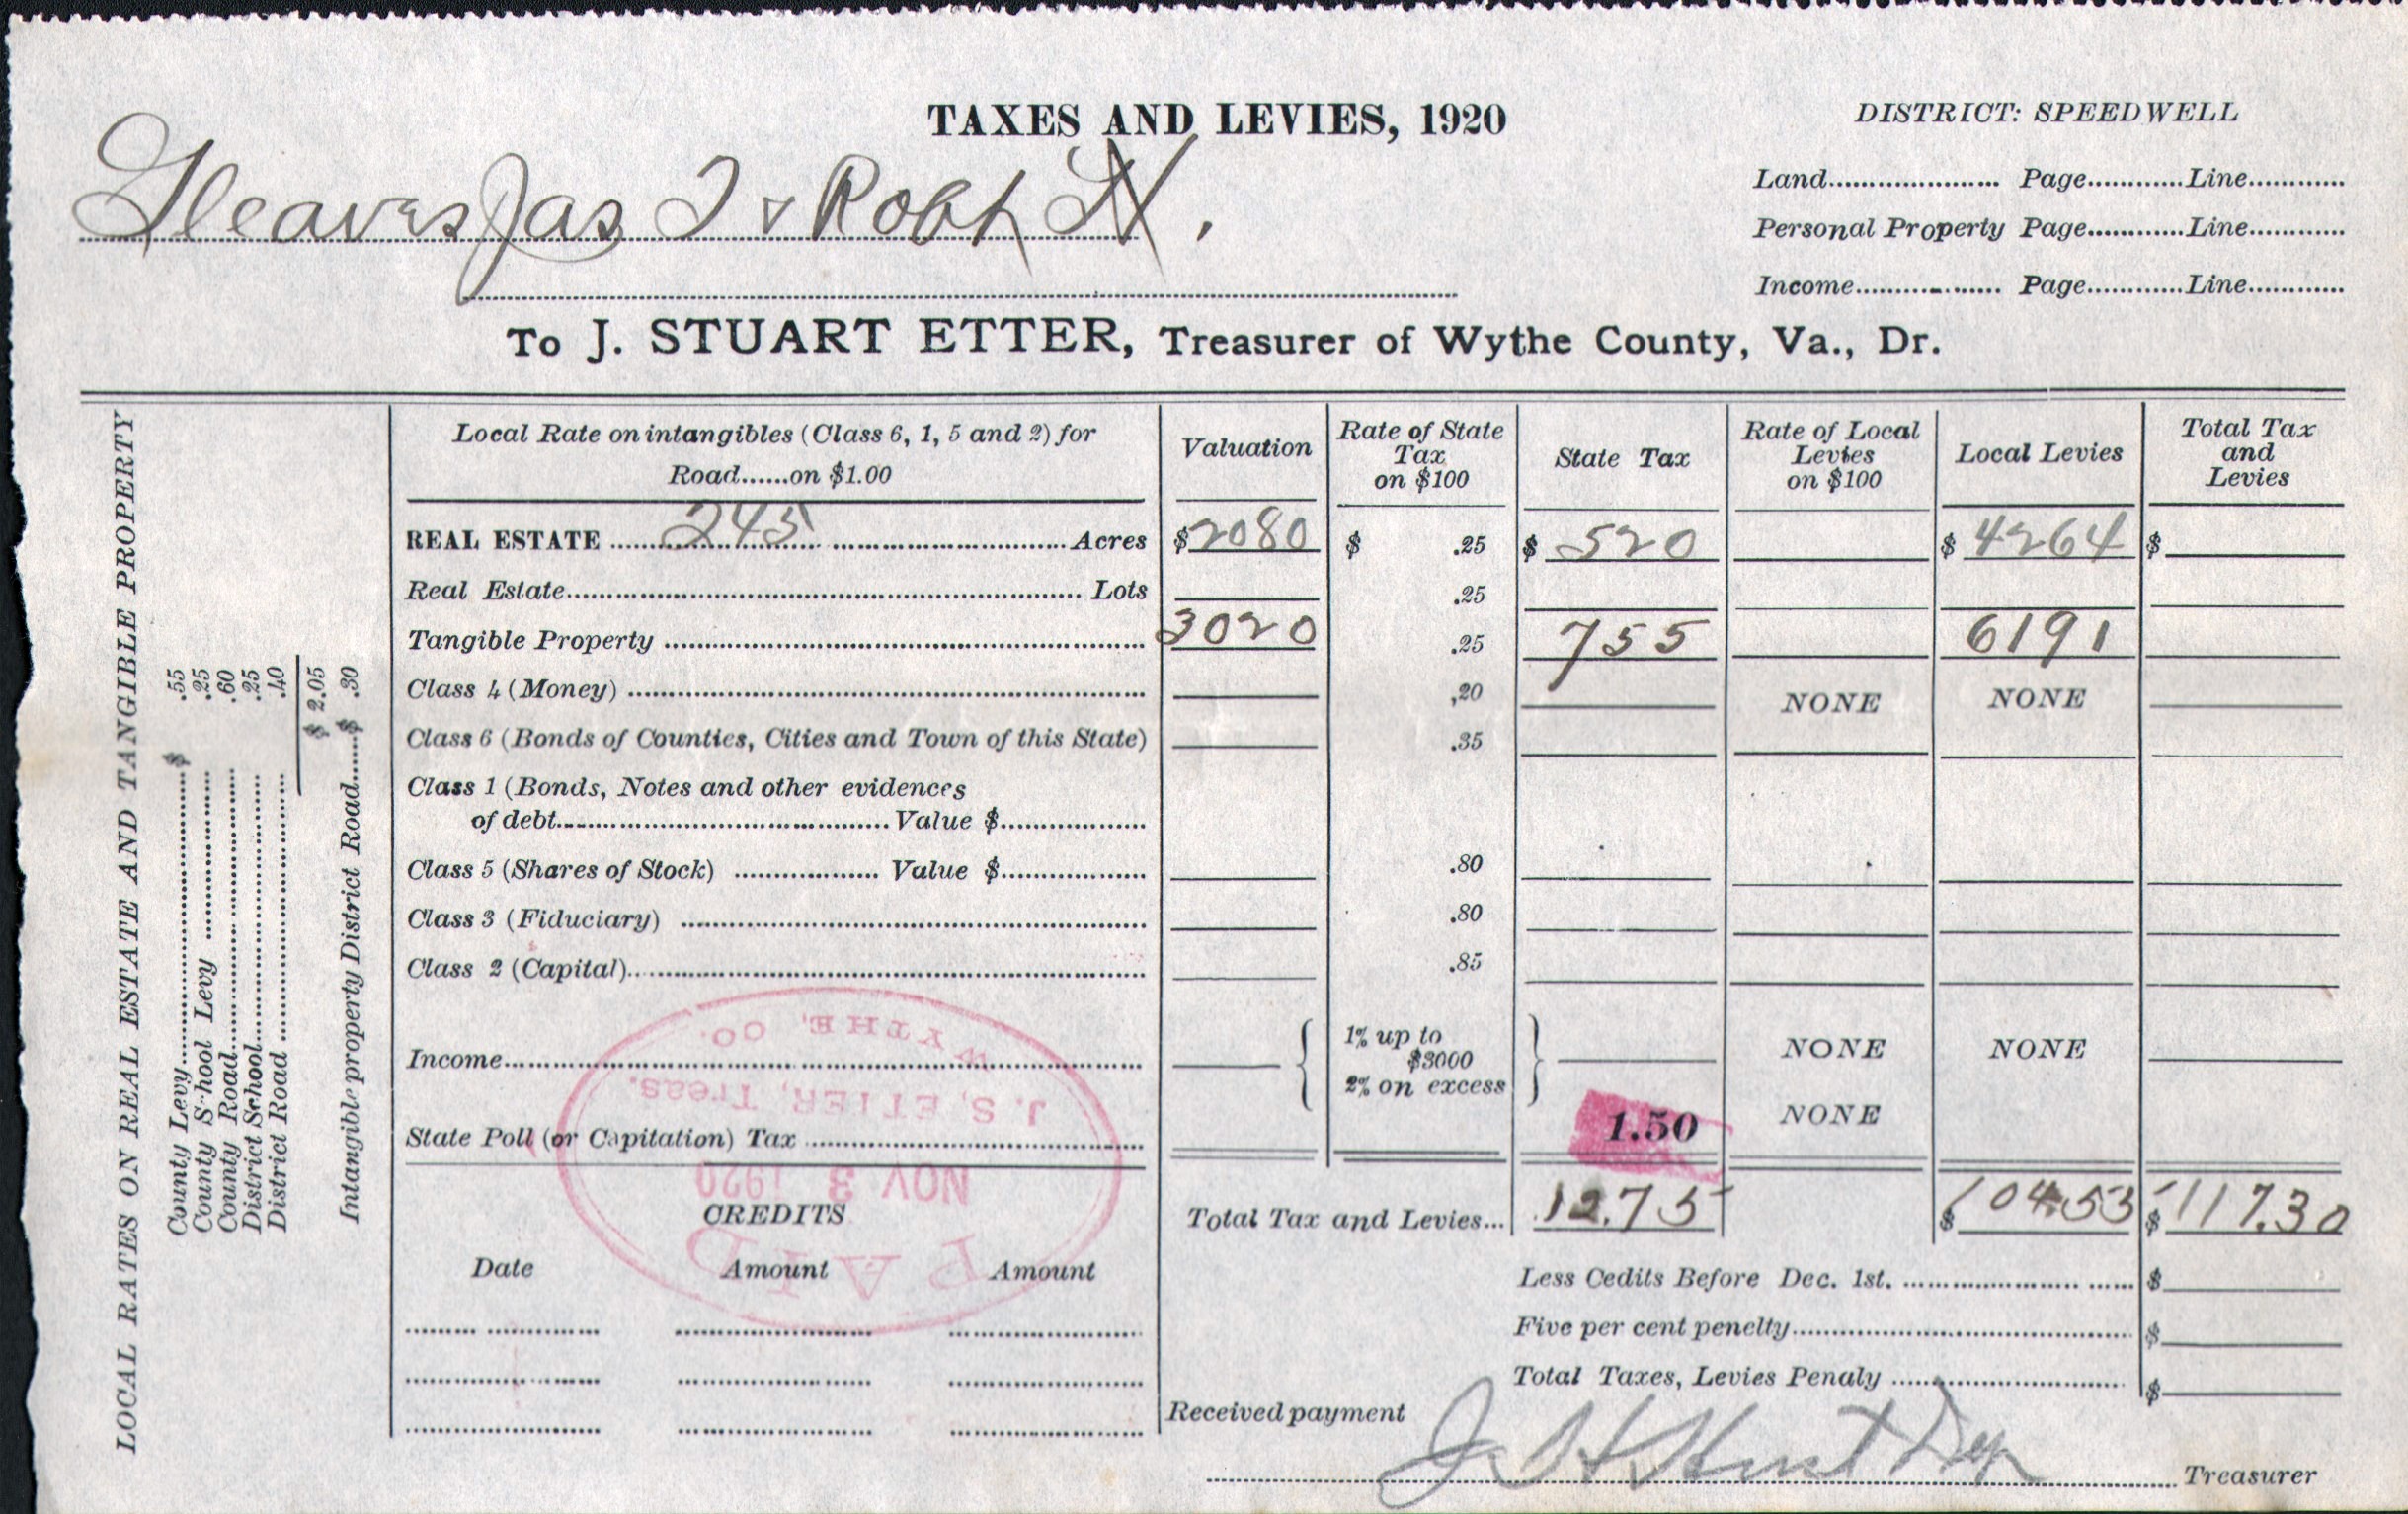 TAXES AND LEVIES, 1920
DISTRICT: SPEEDWELL
Gleaves Jas T & Robt
Land..................... Page............Line............
Personal Property Page............Line............
Income.................. Page............Line............
To J. STUART ETTER, Treasurer of Wythe County, Va., Dr.
LOCAL RATES ON REAL ESTATE AND TANGIBLE PROPERTY
County Levy..........$ .55
County S-hool Levy .......... .25
County Road.......... .60
District School.......... .25
District Road .......... .40
$ 2.05
Intangible property District Road......$ .30
Local Rate on intangibles (Class 6, 1, 5 and 2) for
Road......on $1.00
Valuation
Rate of State Tax on $100
State Tax
Rate of Local Levies on $100
Local Levies
Total Tax and Levies
REAL ESTATE ......245......Acres $2080 $ .25 $ 520 $ 4264 $
Real Estate.......... Lots .25
Tangible Property .......... 3020 .25 755 6191
Class 4 (Money) .......... ,20 NONE NONE
Class 6 (Bonds of Counties, Cities and Town of this State) .35
Class 1 (Bonds, Notes and other evidences
of debt.......... Value $..........
Class 5 (Shares of Stock) .......... Value $.......... .80
Class 3 (Fiduciary) .......... .80
Class 2 (Capital).......... .85
Income.......... 1% up to $3000 2% on excess NONE NONE
State Poll (or Capitation) Tax .......... 1.50 NONE
Total Tax and Levies... 12.75 $ 104.53 $ 117.30
CREDITS
Date Amount Amount
Less Cedits Before Dec. 1st. .......... $
Five per cent penelty.......... $
Total Taxes, Levies Penaly .......... $
Received payment
J. H. Hurst Dep
Treasurer
PAID
NOV 3 1920
J. S. ETTER, Treas.
WYTHE, CO.